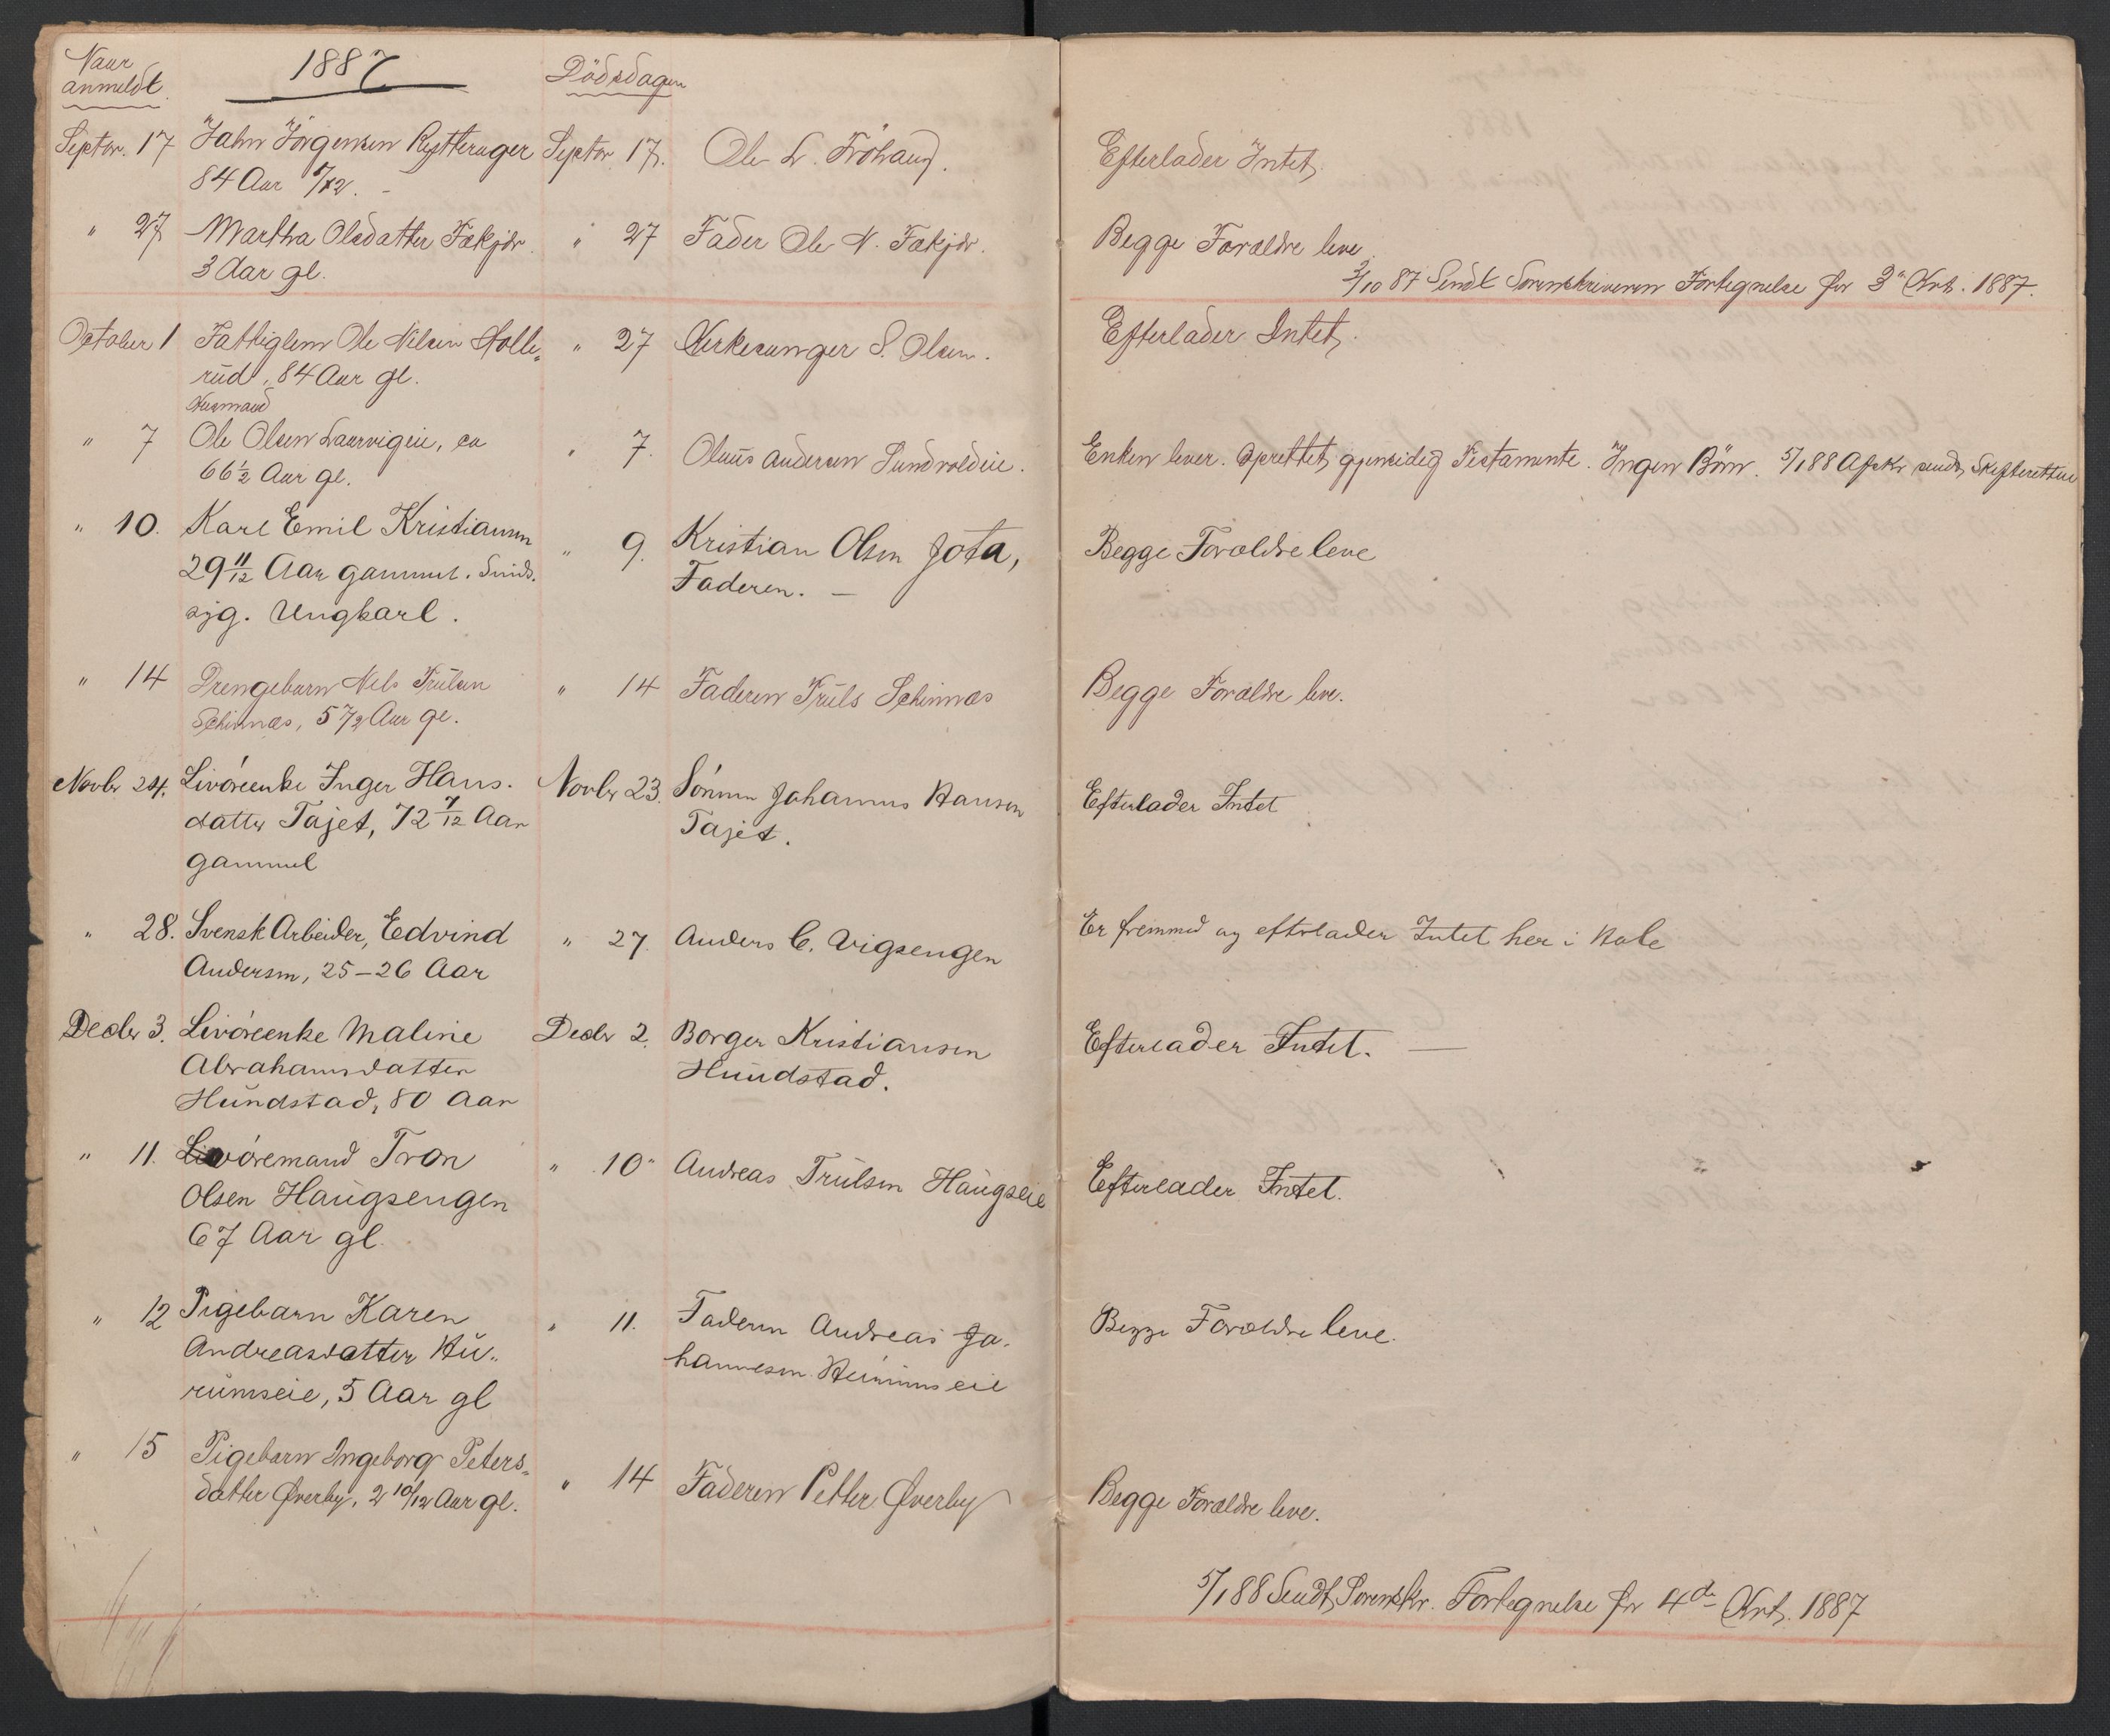 Naar
anmeldt.
1887
Dödsdagen
Septbr. 17 Jahn Jörgensen Rytterager Septbr 17. Ole L. Fröhaug. Efterlader Intet.
84 Aar
" 27 Martha Olsdatter Fækjør. " 27 Fader Ole N. Fækjør. Begge Forældre leve.
3 Aar gl.
3/10 87 Sendt Sorenskriveren Fortegnelse for 3die Kvt. 1887.
October 1 Fattiglem Ole Nilsen Holle- " 27 Kirkesanger S. Olsen. Efterlader Intet.
rud, 84 Aar gl.
Husmand
" 7 Ole Olsen Laurvigeie, ca " 7. Olaus Andersen Sundvoldeie. Enken lever. Oprettet gjensidig Testamente. Ingen Börn. 5/1 88 Afskr sendt Skifteretten
66½ Aar gl.
" 10. Karl Emil Kristiansen " 9. Kristian Olsen Jota, Begge Forældre leve
29 11/12 Aar gammel. Sinds- Faderen. —
syg. Ungkarl.
" 14 Drengebarn Nels Trulsen " 14 Faderen Truls Schinnæs Begge Forældre leve.
Schinnæs, 5 1/2 Aar gl.
Novbr 24. Livöreenke Inger Hans- Novbr 23. Sönnen Johannes Hansen Efterlader Intet
datter Tajet, 72 7/12 Aar Tajet.
gammel
" 28. Svensk Arbeider, Edvind " 27. Anders C. Vigsengen Er fremmed og efterlader Intet her i Hole
Andersen, 25–26 Aar
Decbr 3. Livöreenke Maline Decbr 2. Borger Kristiansen Efterlader Intet. —
Abrahamsdatter Hundstad.
Hundstad, 80 Aar
" 11. Livöremand Tron " 10 Andreas Trulsen Haugseie Efterlader Intet.
Olsen Haugsengen
67 Aar gl.
" 12 Pigebarn Karen " 11. Faderen Andreas Jo- Begge Forældre leve.
Andreasdatter Hu- hannesen Hurumseie
rumseie, 5 Aar gl
" 15 Pigebarn Ingeborg Peters- " 14 Faderen Petter Øverby Begge Forældre leve.
datter Øverby, 2 10/12 Aar gl.
5/1 88 Sendt Sorenskr. Fortegnelse for 4de Kvt. 1887